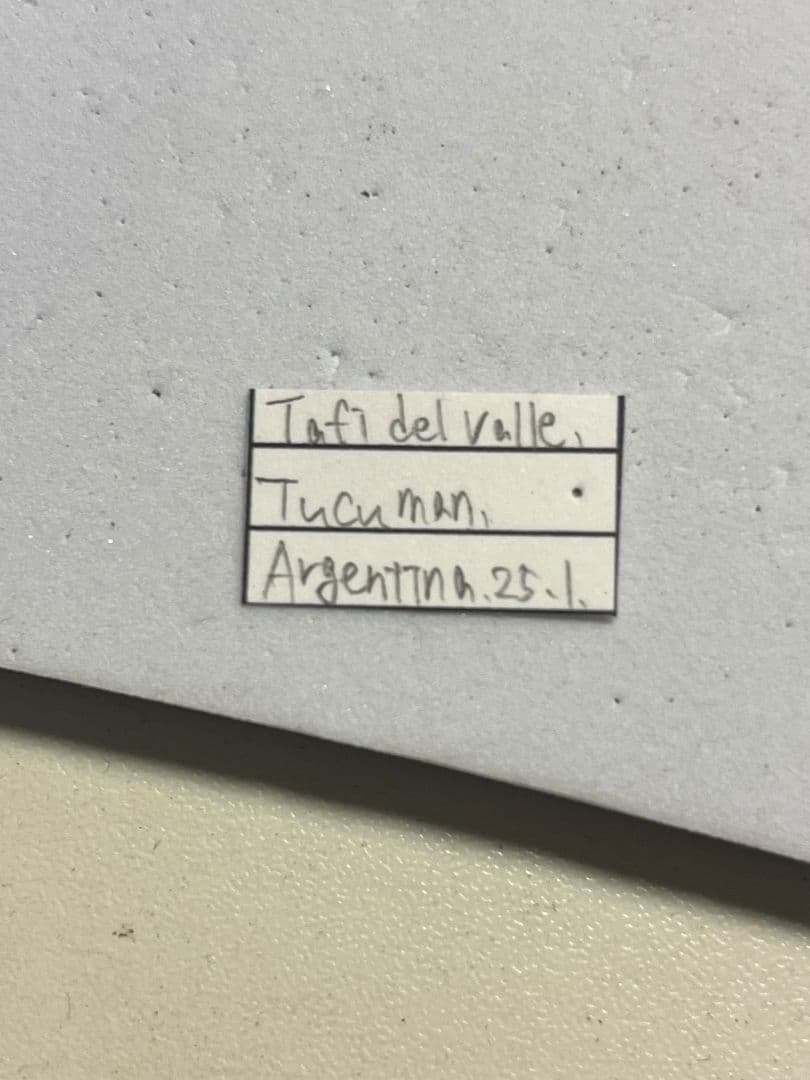 Tafi del valle,
Tucuman,
Argentina. 25.1.